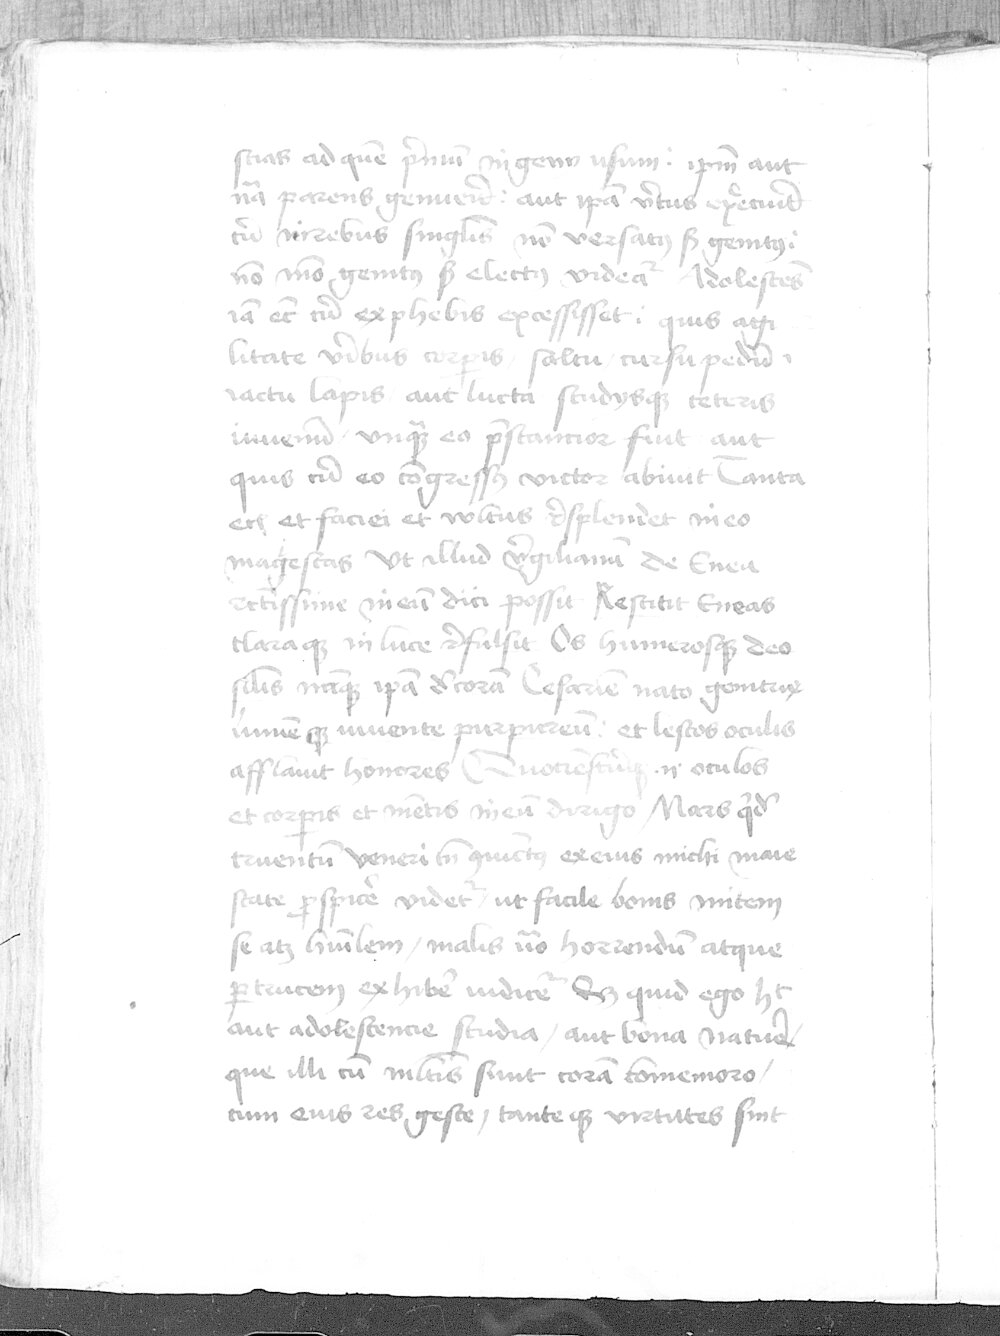 scias ad quē p̄miū ingenio usum: ipm̄ aut
nā parens genuerit: aut ipā v̄tus
cū in rebus singlis nō versatꝰ sꝫ genitꝰ:
nō mō genitꝰ sꝫ electꝰ videat᷑ Adolescēs
iā et̄ cū ex phebis excessisset: quis agi
litate v̄ibus corꝑis, saltu, cursu pedū,
iactu lapis, aut lucta studijsqꝫ ceteris
iuvenū, vnqꝫ eo p̄stantior fuit aut
quis cū eo cōgressꝰ victor abiuit Tanta
et faciei et vultus r̄splendet in eo
magestas Vt illud v̄gilianū de Enea
in eū dici possit Restitit Eneas
claraqꝫ in luce r̄fulsit Os humerosqꝫ deo
silis nāqꝫ ipā d̄corā Cesariē nato genitrix
lumēqꝫ iuvente purpureū: et lestos oculis
afflauit honores oculos
et corꝑis et mētis in eū dirigo, Mars qd̄
truentū veneri tn̄ ꝯiūctꝰ ex eius michi maie
state ꝑspicē videt᷑, ut facile bonis mitem
se atqꝫ hūilem, malis ūo horrendū atque
ꝑtrucem exhibē iudicē Sꝫ quid ego h̄
aut adolescencie studia, aut bona nature,
que illi cū mltis sunt corā cōmemoro,
cum eius res geste, tanteqꝫ virtutes sint